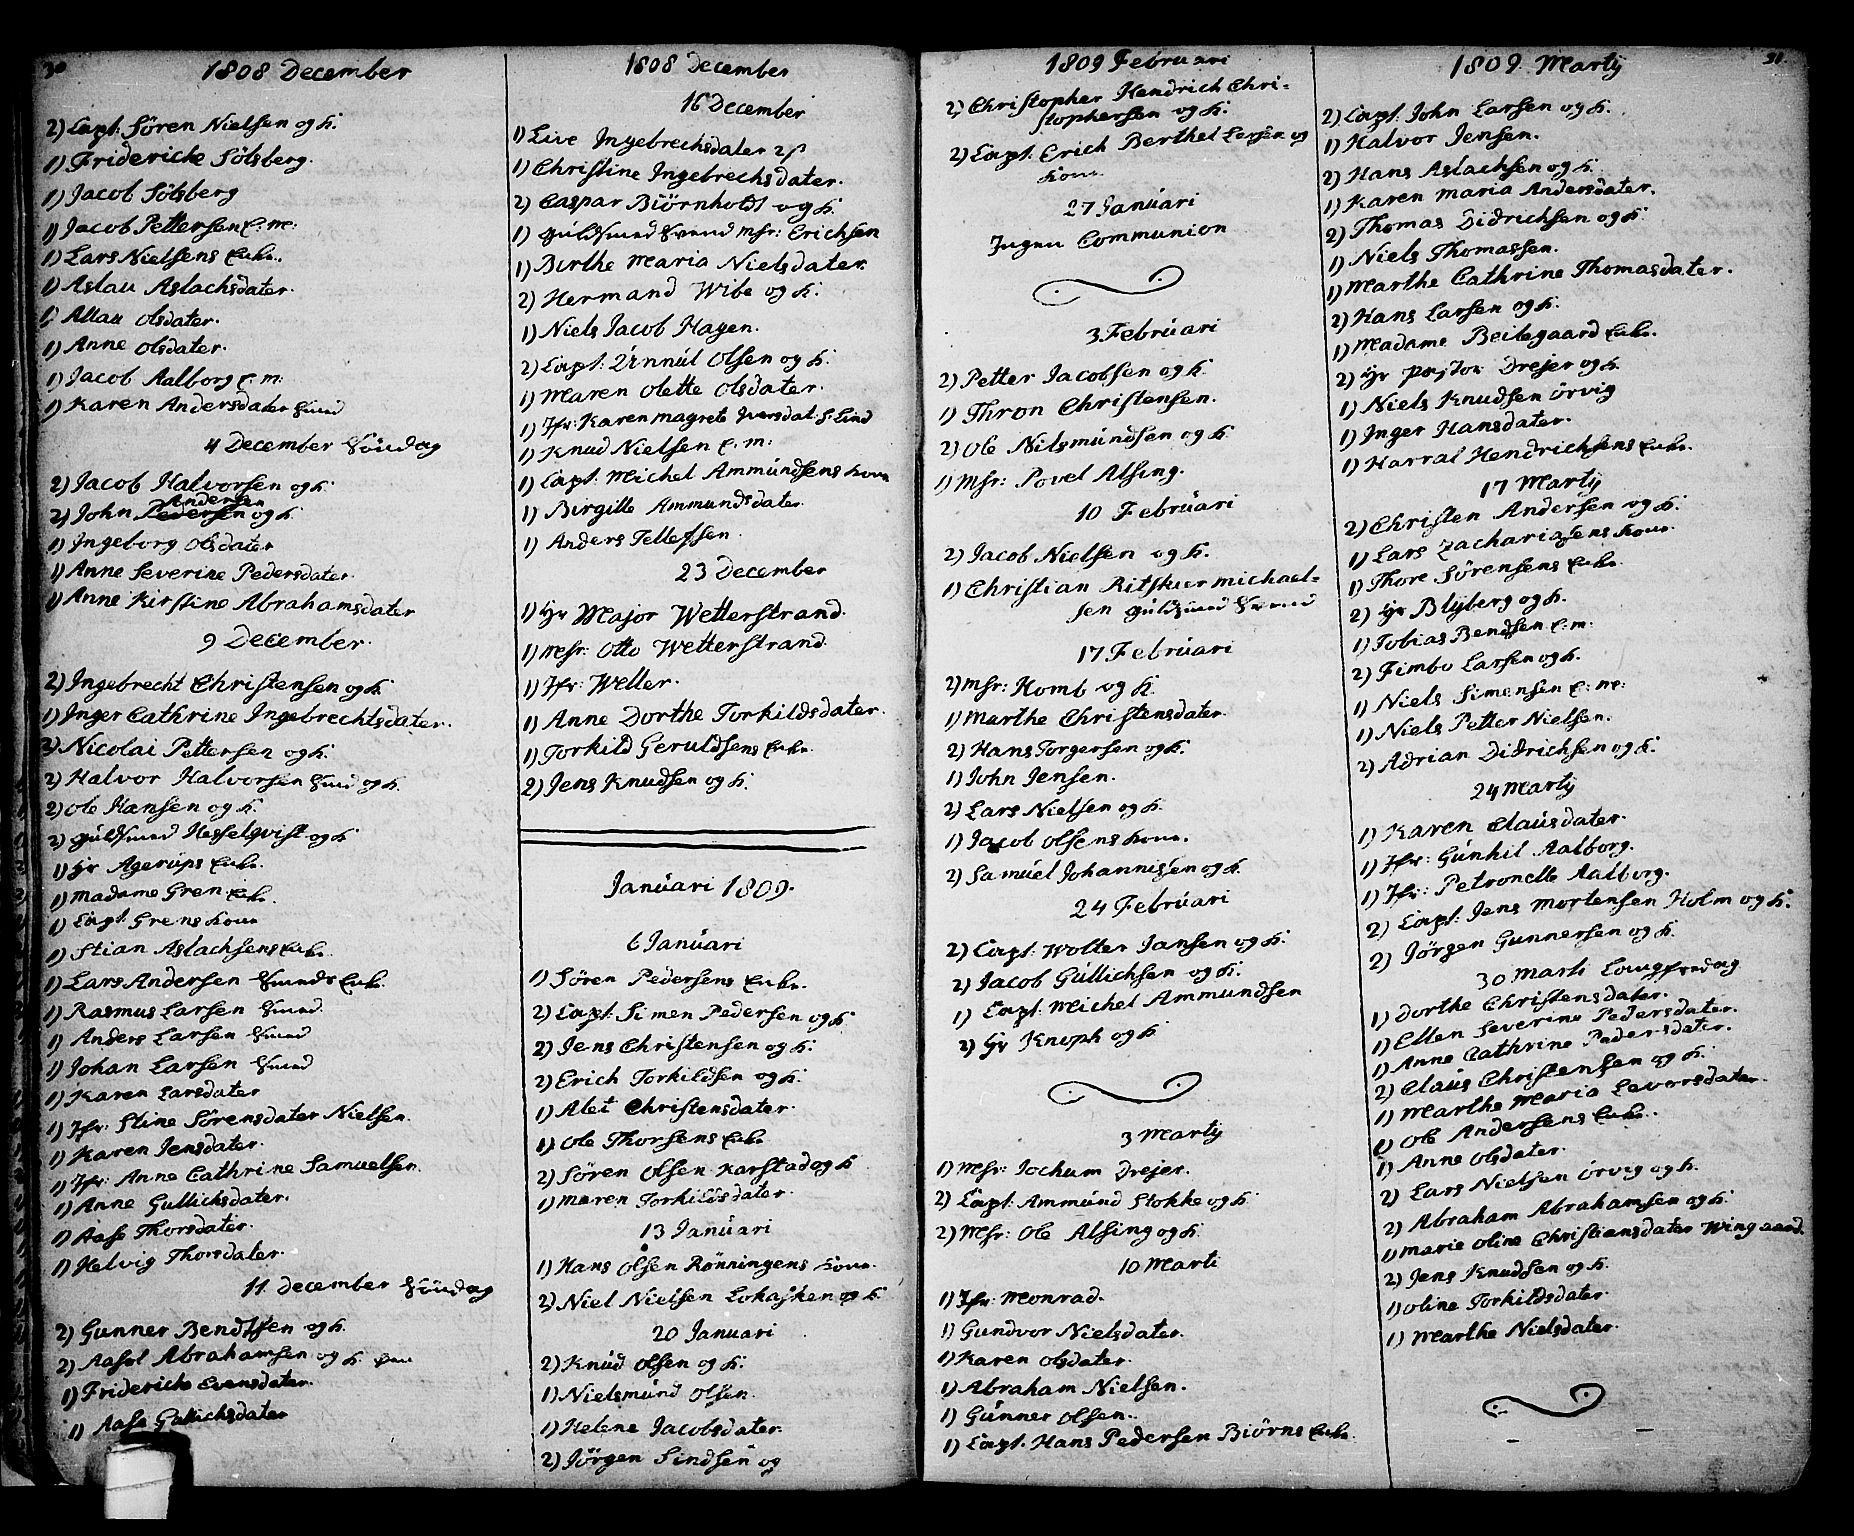 30
1808 December
2) Capt: Sören Nielsen og K.
1) Friderich Sölsberg.
1) Jacob Sölsberg
1) Jacob Pettersen E: m:
1) Lars Nielsens Enke.
1) Aslau Aslachsdater.
1) Allau Olsdater.
1) Anne Olsdater.
1) Jacob Aalborg E: m:
1) Karen Andersdater Smed
4 December Söndag
2) Jacob Halvorsen og K.
Andersen
2) John Pedersen og K.
1) Ingeborg Olsdater
1) Anne Severine Pedersdater.
1) Anne Kirstine Abrahamsdater
9 December.
2) Ingebrecht Christensen og K.
1) Inger Cathrine Ingebrechtsdater.
2) Nicolai Pettersen og K.
2) Halvor Halvorsen Smed og K.
2) Ole Hansen og K.
2) Guldsmed Hesselqvist og K
1) Hr Agerups Enke.
1) Madame Gren Enke.
1) Capt. Grens Kone
1) Stian Aslachsens Enke.
1) Lars Andersen Smeds Enke.
1) Rasmus Larsen Smed.
1) Anders Larsen Smed
1) Johan Larsen Smed
1) Karen Larsdater
1) Jfr: Stine Sörensdater Nielsen.
1) Karen Jensdater.
1) Jfr: Anne Cathrine Samuelsen.
1) Anne Gullichsdater.
1) Aase Thorsdater.
1) Helvig Thorsdater.
11 December Söndag
2) Gunner Bendtsen og K.
2) Aasol Abrahamsen og K.
1) Friderich Evensdater.
1) Aase Gullichsdater
1808 December
16 December
1) Live Ingebrechsdater 2 ß
1) Christine Ingebrechsdater.
2) Caspar Biörnholdt og K.
1) Guldsmed Svend msr: Erichsen
1) Birthe Maria Nielsdater.
2) Hermand Wibe og K.
1) Niels Jacob Hagen.
2) Capt: Unnúl Olsen og K
1) Maren Olette Olsdater.
1) Jfr: Karen Magrete Iversdat: S Lind
1) Knud Nielsen E: m:
1) Capt: Michel Ammúndsens Kone
1) Birgitte Ammundsdater.
1) Anders Tellefsen.
23 December
1) Hr Major Wetterstrand.
1) Msr: Otto Wetterstrand.
1) Jfr: Weller.
1) Anne Dorthe Torkildsdater.
1) Torkild Geruldsens Enke.
2) Jens Knudsen og K.
Janúari 1809.
6 Janúari
1) Sören Pedersens Enke.
2) Capt: Simen Pedersen og K.
2) Jens Christensen og K:
2) Erich Torkildsen og K.
1) Alet Christensdater.
1) Ole Thorsens Enke
2) Sören Olsen Karstad og K
1) Maren Torkildsdater.
13 Janúari
1) Hans Olsen Rönningens Kone.
2) Niel Nielsen Lokasken og K
20 Janúari
2) Knúd Olsen og K.
1) Nielsmúnd Olsen.
1) Helene Jacobsdater.
2) Jörgen Sindsen og
1809 Februari
2) Christopher Hendrich Chri-
stophersen og K.
2) Capt. Erich Berthel Larsen og
Kone.
27 Januari
Ingen Communion
3 Februari
2) Petter Jacobsen og K.
1) Thron Christensen.
2) Ole Nilsmúndsen og K.
1) Msr: Povel Alsing.
10 Februari
2) Jacob Nielsen og K.
1) Christian Ritskier Michael-
sen Guldsmed Svend
17 Februari
2) Msr: Homb og K.
1) Marthe Christensdater.
2) Hans Torgersen og K.
1) John Jensen.
2) Lars Nielsen og K.
1) Jacob Olsens Kone.
2) Samúel Johannisen og K.
24 Februari
2) Capt: Wolter Jansen og K.
2) Jacob Gúllichsen og K.
1) Capt. Michel Ammundsen
2) Hr Knoph og K
3 Martij
1) Msr: Jochum Drejer.
2) Capt: Ammúnd Stokke og K
2) Msr: Ole Alsing og K.
10 Marti
1) Jfr: Monrad.
1) Gundvor Nielsdater.
1) Karen Olsdater.
1) Abraham Nielsen.
1) Gúnner Olsen.
1) Capt. Hans Pedersen Biörns Enke
31
1809. Martij
2) Capt. John Larsen og K.
1) Halvor Jensen.
2) Hans Aslachsen og K.
1) Karen Maria Andersdater.
2) Thomas Didrichsen og K.
1) Niels Thomassen.
1) Marthe Cathrine Thomasdater.
2) Hans Larsen og K.
1) Madame Beitegaard Enke.
2) Hr Pastor Drejer og K.
1) Niels Knudsen Örvig
1) Inger Hansdater.
1) Harral Hendrichsens Enke.
17 Martij
2) Christen Andersen og K.
1) Lars Zachariasens Kone.
1) Thore Sörensens Enke.
2) Hr Blijberg og K.
1) Tobias Bendsen E: m:
2) Fimbo Larsen og K.
1) Niels Simensen E: m:
1) Niels Petter Nielsen.
2) Adrian Didrichsen og K.
24 Martij
1) Karen Claúsdater.
1) Jfr: Gúnhil Aalborg.
1) Jfr: Petronelle Aalborg.
2) Capt: Jens Mortensen Holm og K.
2) Jörgen Gunnersen og K.
30 Marti Langfredag
1) Dorthe Christensdater.
1) Ellen Severine Pedersdater.
1) Anne Cathrine Pedersdater.
2) Claús Christensen og K.
1) Marthe Maria Levorsdater.
1) Ole Andersens Enke.
1) Anne Olsdater.
2) Lars Nielsen Örvig og K.
2) Abraham Abrahamsen og K.
1) Marie Oline Christiansdater Wingaard.
2) Jens Knudsen og K.
1) Oline Torkildsdater.
1) Marthe Nielsdater.